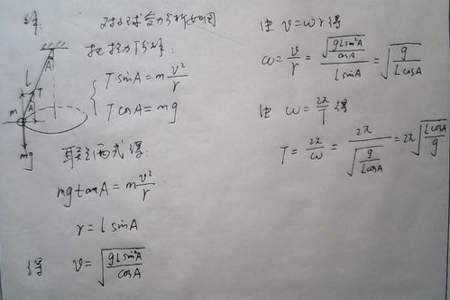 解 对小球受力分析如图
把拉力T分解:
TsinA=m v²/r
TcosA=mg
A
L
T
A
m
mg
联立两式得
mgtanA=m v²/r
r=LsinA
得 v=√(gLsin²A/cosA)
由 v=ωr得
ω=v/r=√(gLsin²A/cosA)/LsinA=√(g/LcosA)
由 ω=2π/T得
T=2π/ω=2π/√(g/LcosA)=2π√(LcosA/g)